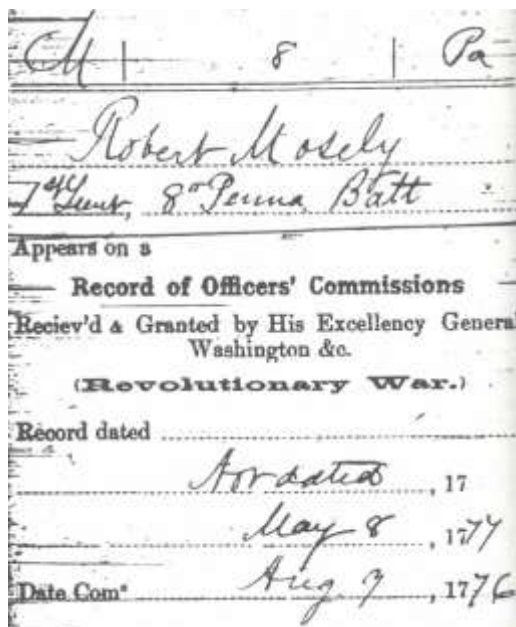 M | 8 | Pa
Robert Mosely
1st Lieut, 8" Penna Batt
Appears on a
Record of Officers' Commissions
Reciev'd & Granted by His Excellency General
Washington &c.
(Revolutionary War.)
Record dated
Not dated, 17
May 8, 1777
Date Com* Aug. 7, 1776